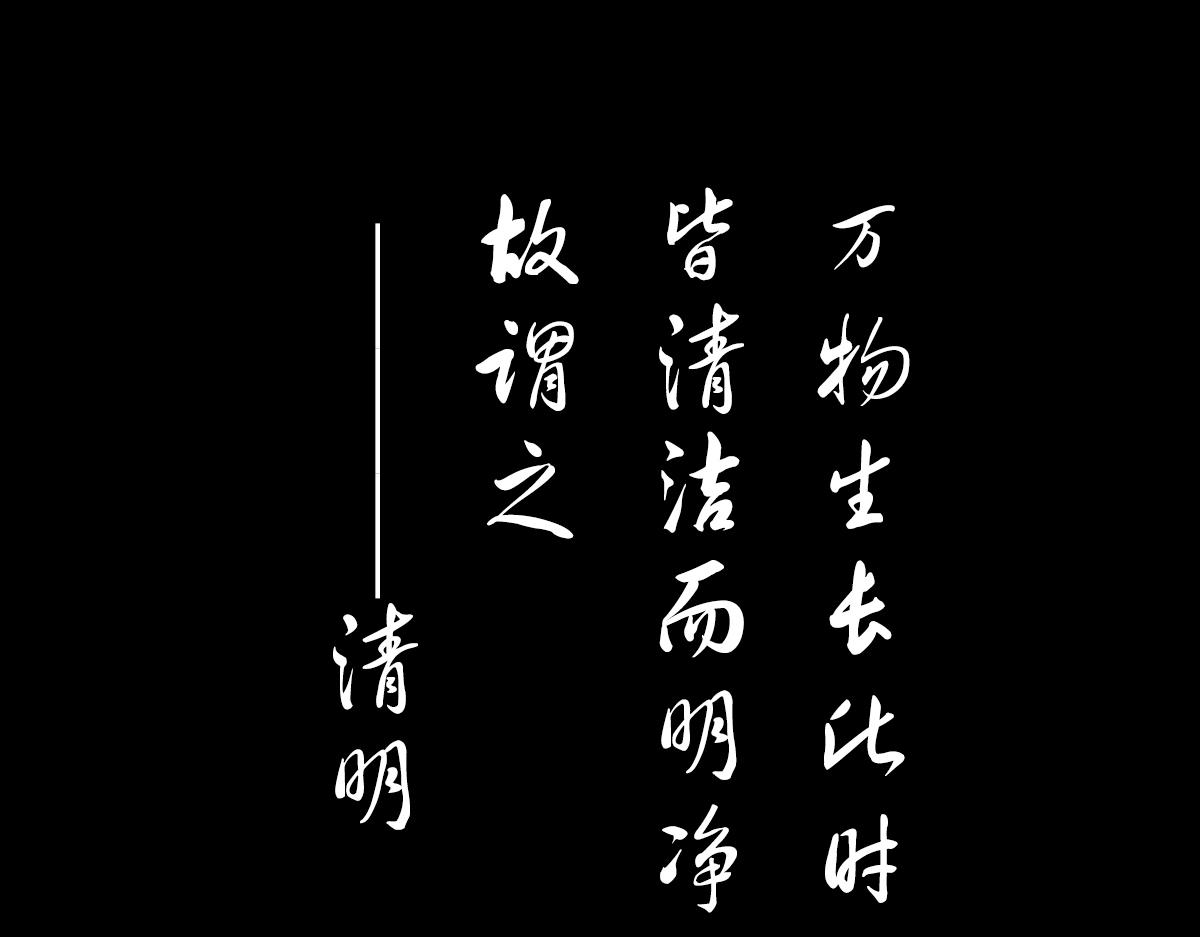 万物生长此时
皆清洁而明净
故谓之
———清明